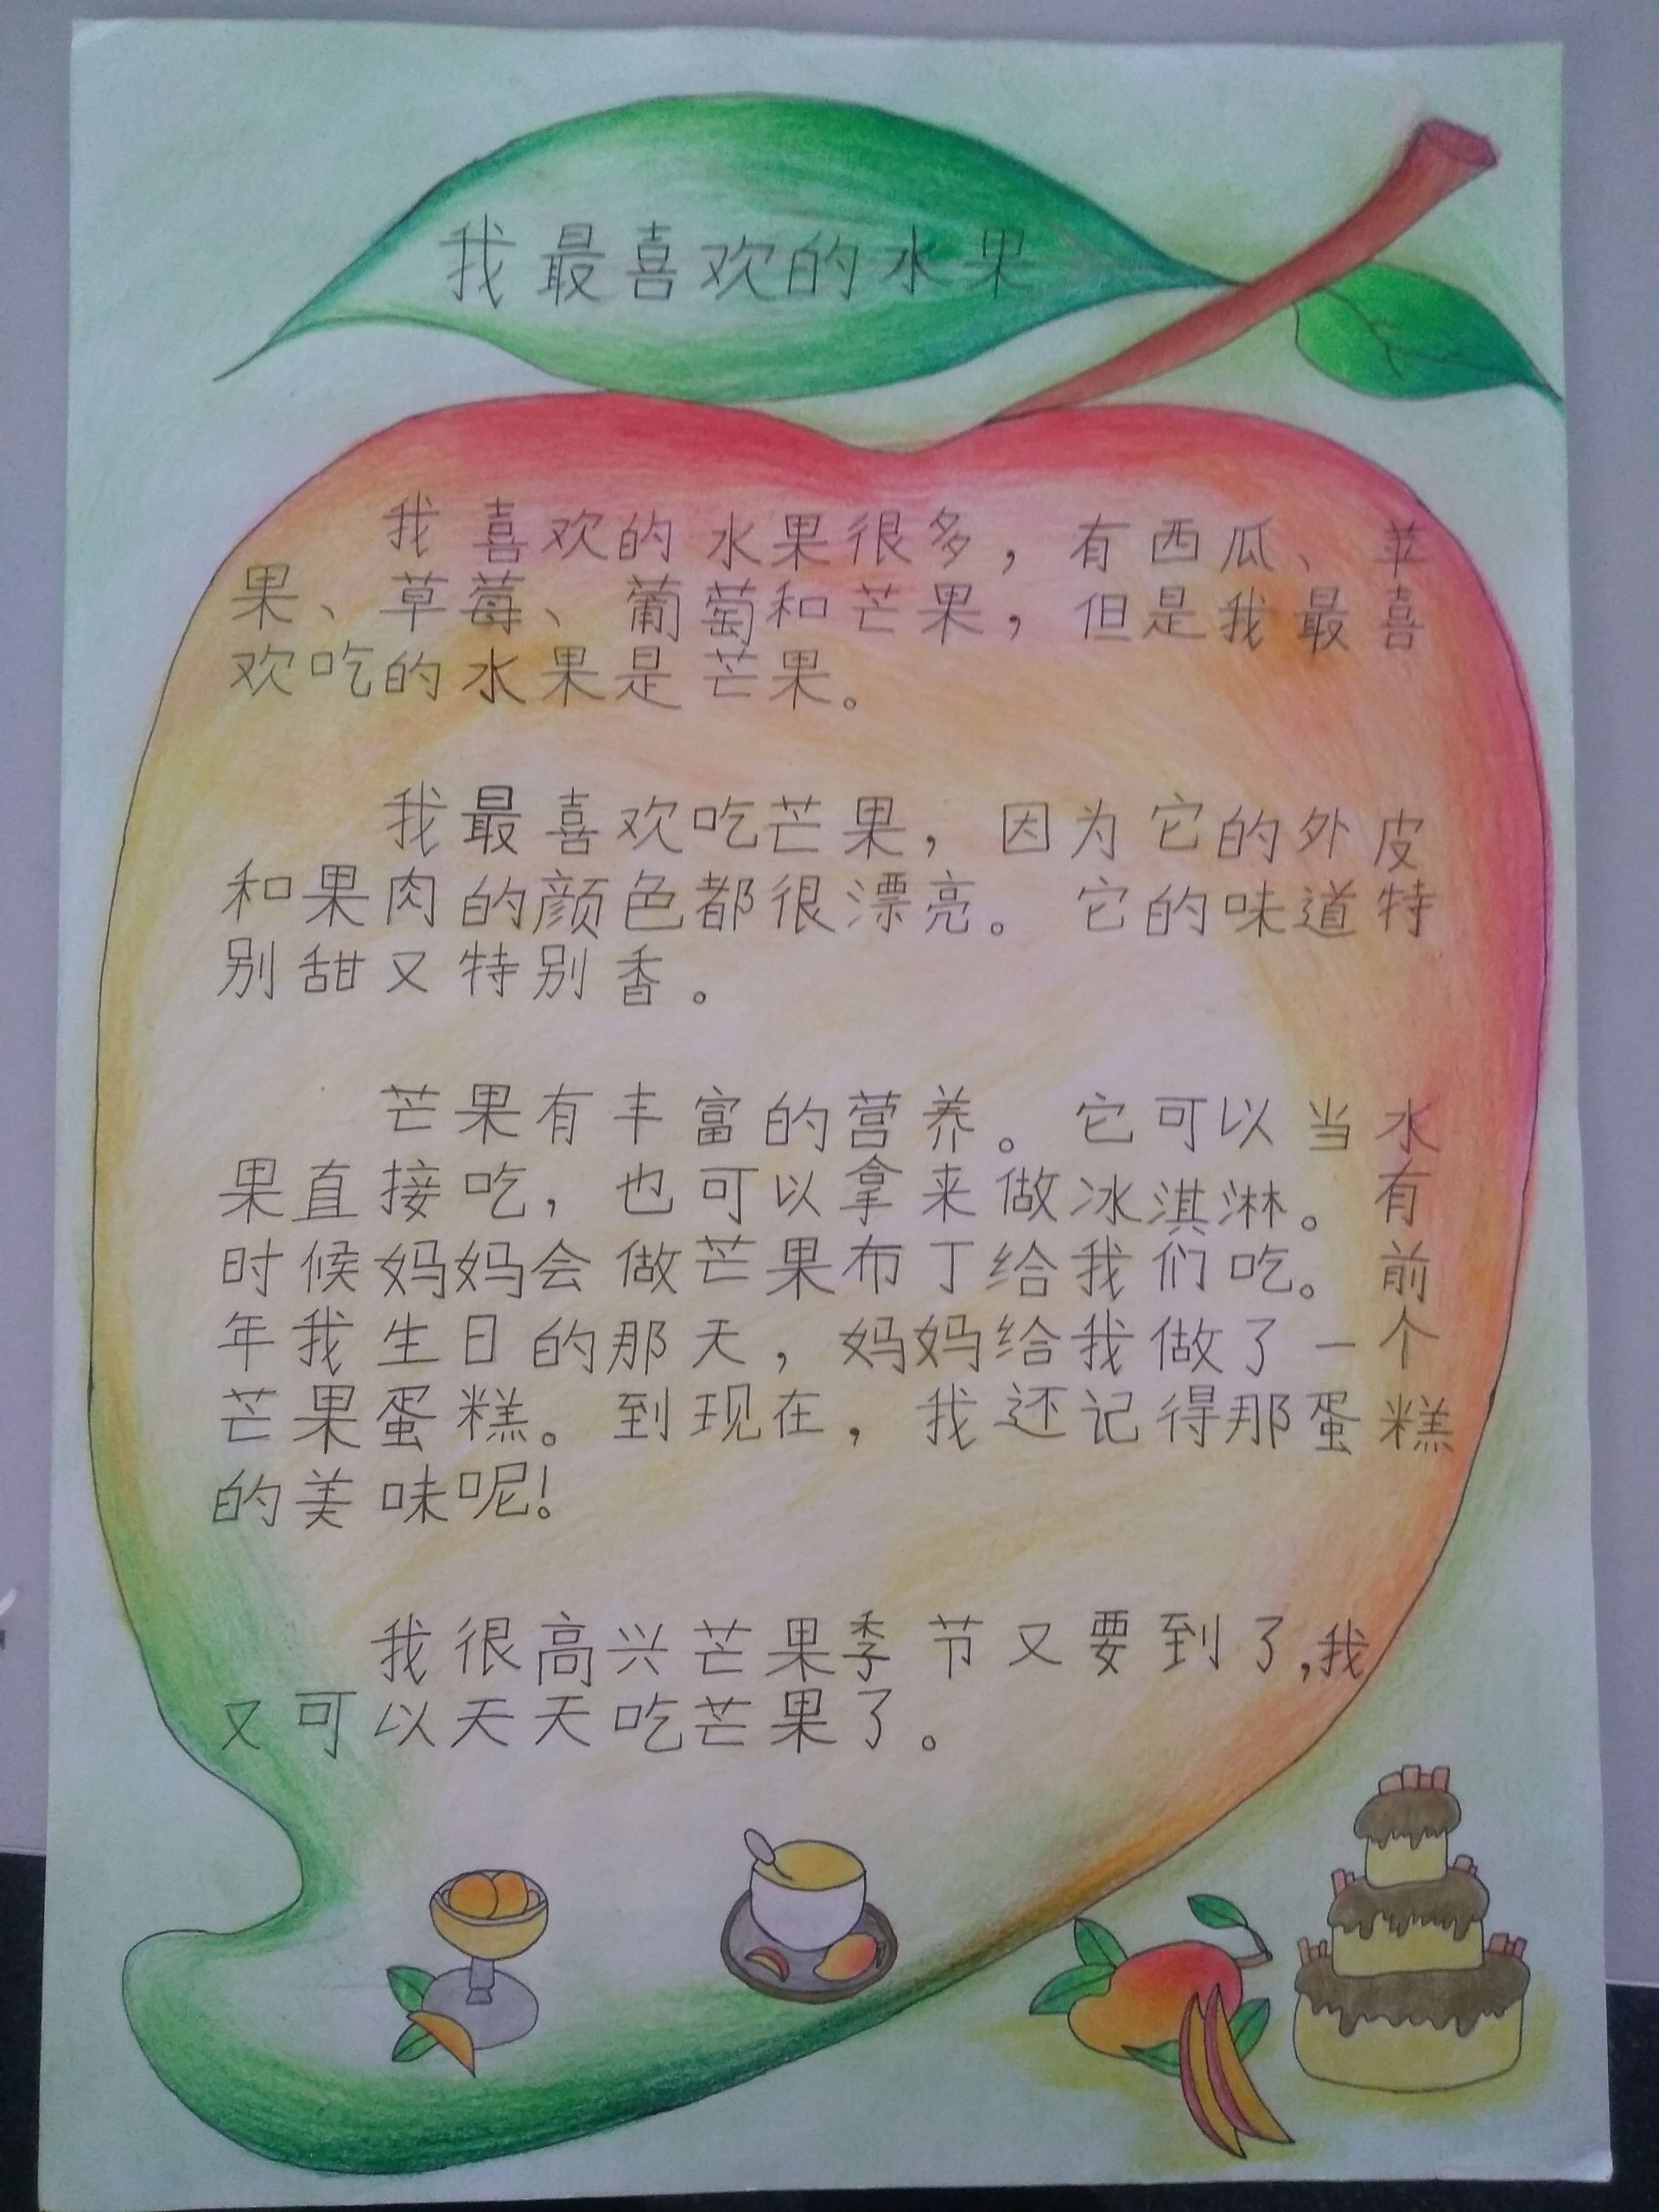 我最喜欢的水果
我喜欢的水果很多，有西瓜、苹
果、草莓、葡萄和芒果，但是我最喜
欢吃的水果是芒果。
我最喜欢吃芒果，因为它的外皮
和果肉的颜色都很漂亮。它的味道特
别甜又特别香。
芒果有丰富的营养。它可以当水
果直接吃，也可以拿来做冰淇淋。有
时候妈妈会做芒果布丁给我们吃。前
年我生日的那天，妈妈给我做了一个
芒果蛋糕。到现在，我还记得那蛋糕
的美味呢！
我很高兴芒果季节又要到了，我
又可以天天吃芒果了。